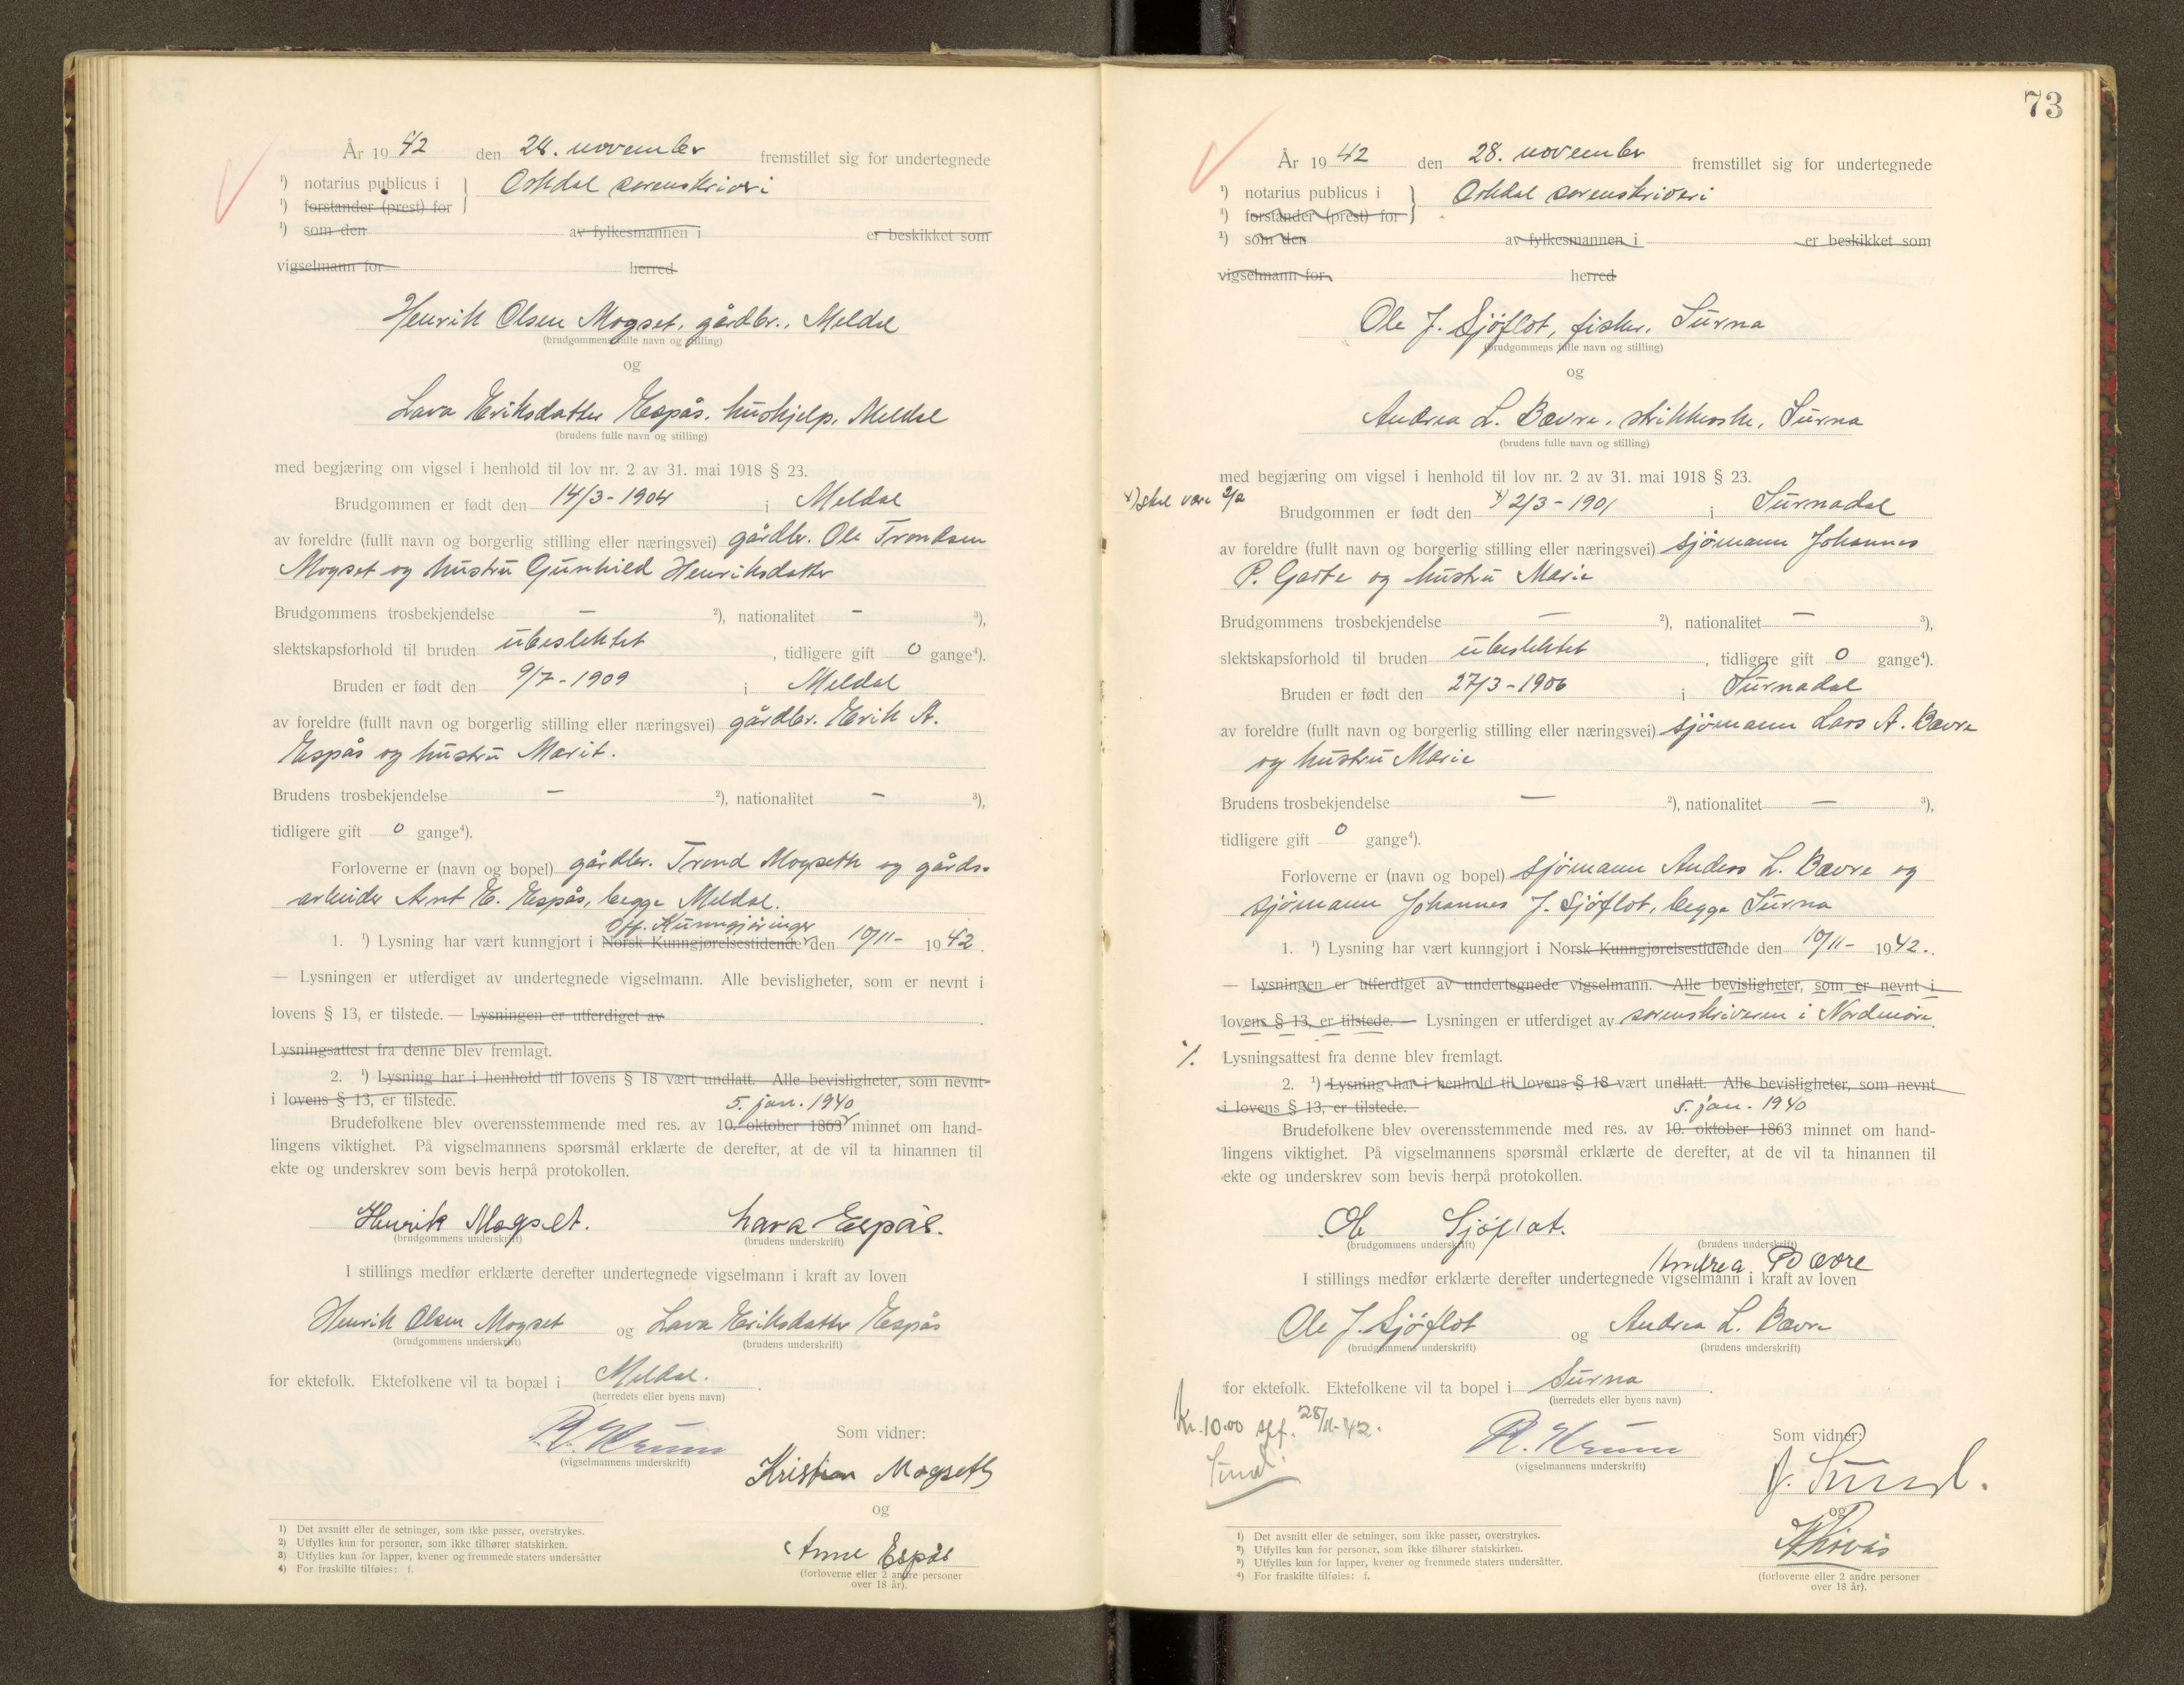 År 19 42 den 28. november fremstillet sig for undertegnede
¹) notarius publicus i } Orkdal sorenskriveri
¹) forstander (prest) for
¹) som den av fylkesmannen i er beskikket som
vigselmann for herred
Henrik Olsen Mogset, gårdbr., Meldal
(brudgommens fulle navn og stilling)
og
Lava Eriksdatter Espås, hushjelp, Meldal
(brudens fulle navn og stilling)
med begjæring om vigsel i henhold til lov nr. 2 av 31. mai 1918 § 23.
Brudgommen er født den 14/3-1904 i Meldal
av foreldre (fullt navn og borgerlig stilling eller næringsvei) gårdbr. Ole Trondsen
Mogset og hustru Gunhild Henriksdatter
Brudgommens trosbekjendelse – ²), nationalitet – ³),
slektskapsforhold til bruden ubeslektet, tidligere gift 0 gange⁴).
Bruden er født den 9/7-1909 i Meldal
av foreldre (fullt navn og borgerlig stilling eller næringsvei) gårdbr. Erik A.
Espås og hustru Marit.
Brudens trosbekjendelse – ²), nationalitet – ³),
tidligere gift 0 gange⁴).
Forloverne er (navn og bopel) gårdbr. Trond Mogseth og gårds-
arbeider Arnt E. Espås, begge Meldal.
Off. Kunngjøringer
1. ¹) Lysning har vært kunngjort i Norsk Kunngjørelsestidende den 10/11- 19 42.
— Lysningen er utferdiget av undertegnede vigselmann. Alle bevisligheter, som er nevnt i
lovens § 13, er tilstede. — Lysningen er utferdiget av
Lysningsattest fra denne blev fremlagt.
2. ¹) Lysning har i henhold til lovens § 18 vært undlatt. Alle bevisligheter, som nevnt
i lovens § 13, er tilstede. 5. jan. 1940
Brudefolkene blev overensstemmende med res. av 10. oktober 1863 minnet om hand-
lingens viktighet. På vigselmannens spørsmål erklærte de derefter, at de vil ta hinannen til
ekte og underskrev som bevis herpå protokollen.
Henrik Mogset. Lava Espås.
(brudgommens underskrift) (brudens underskrift)
I stillings medfør erklærte derefter undertegnede vigselmann i kraft av loven
Henrik Olsen Mogset og Lava Eriksdatter Espås
(brudgommens underskrift) (brudens underskrift)
for ektefolk. Ektefolkene vil ta bopæl i Meldal.
(herredets eller byens navn)
R. Krum
(vigselmannens underskrift)
Som vidner:
Kristian Mogseth
og
Anne Espås
(forloverne eller 2 andre personer
over 18 år).
1) Det avsnitt eller de setninger, som ikke passer, overstrykes.
2) Utfylles kun for personer, som ikke tilhører statskirken.
3) Utfylles kun for lapper, kvener og fremmede staters undersåtter
4) For fraskilte tilføies: f.
73
År 19 42 den 28. november fremstillet sig for undertegnede
¹) notarius publicus i } Orkdal sorenskriveri
¹) forstander (prest) for
¹) som den av fylkesmannen i er beskikket som
vigselmann for herred
Ole J. Sjøflot, fisker, Surna
(brudgommens fulle navn og stilling)
og
Andrea L. Bævre, strikkerske, Surna
(brudens fulle navn og stilling)
med begjæring om vigsel i henhold til lov nr. 2 av 31. mai 1918 § 23.
x) skal være 2/2
Brudgommen er født den x) 2/3-1901 i Surnadal
av foreldre (fullt navn og borgerlig stilling eller næringsvei) sjømann Johannes
P. Garte og hustru Marie
Brudgommens trosbekjendelse – ²), nationalitet – ³),
slektskapsforhold til bruden ubeslektet, tidligere gift 0 gange⁴).
Bruden er født den 27/3-1906 i Surnadal
av foreldre (fullt navn og borgerlig stilling eller næringsvei) sjømann Lars A. Bævre
og hustru Marie
Brudens trosbekjendelse – ²), nationalitet – ³),
tidligere gift 0 gange⁴).
Forloverne er (navn og bopel) sjømann Anders L. Bævre og
sjømann Johannes J. Sjøflot, begge Surna
1. ¹) Lysning har vært kunngjort i Norsk Kunngjørelsestidende den 10/11- 19 42.
— Lysningen er utferdiget av undertegnede vigselmann. Alle bevisligheter, som er nevnt i
lovens § 13, er tilstede. — Lysningen er utferdiget av sorenskriveren i Nordmøre.
./. Lysningsattest fra denne blev fremlagt.
2. ¹) Lysning har i henhold til lovens § 18 vært undlatt. Alle bevisligheter, som nevnt
i lovens § 13, er tilstede. 5. jan. 1940
Brudefolkene blev overensstemmende med res. av 10. oktober 1863 minnet om hand-
lingens viktighet. På vigselmannens spørsmål erklærte de derefter, at de vil ta hinannen til
ekte og underskrev som bevis herpå protokollen.
Ole Sjøflot.
(brudgommens underskrift) (brudens underskrift)
Andrea Bævre
I stillings medfør erklærte derefter undertegnede vigselmann i kraft av loven
Ole J. Sjøflot og Andrea L. Bævre
(brudgommens underskrift) (brudens underskrift)
for ektefolk. Ektefolkene vil ta bopel i Surna.
(herredets eller byens navn)
Kr. 10.00 28/11-42.
Sund.
R. Krum
(vigselmannens underskrift)
Som vidner:
J. Sund.
og
(forloverne eller 2 andre personer
over 18 år).
1) Det avsnitt eller de setninger, som ikke passer, overstrykes.
2) Utfylles kun for personer, som ikke tilhører statskirken.
3) Utfylles kun for lapper, kvener og fremmede staters undersåtter.
4) For fraskilte tilføies: f.